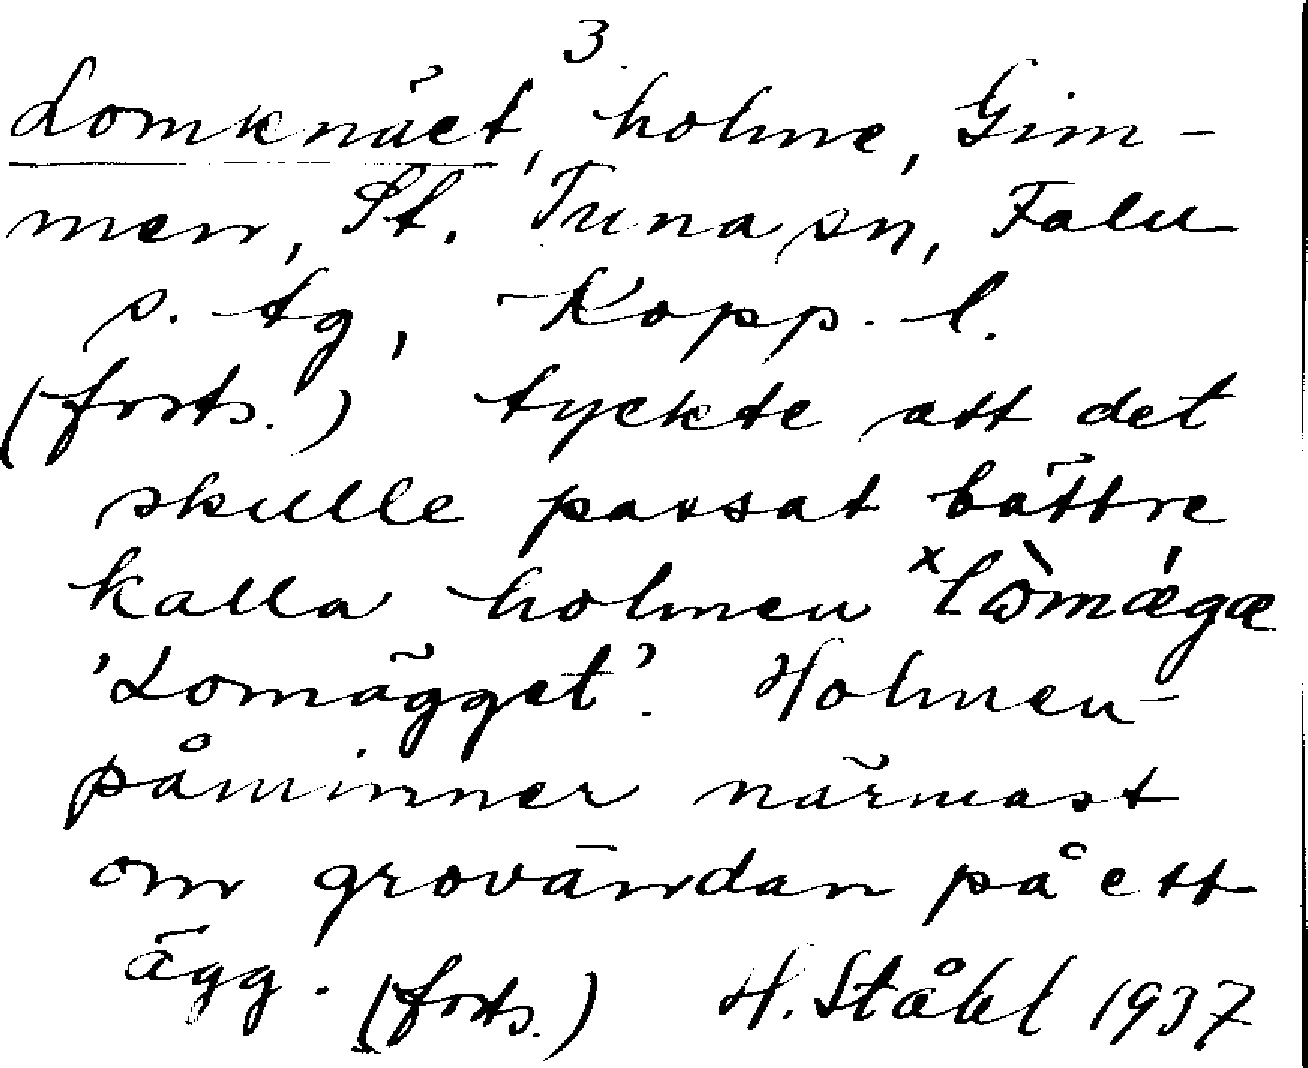 3.
Lomknäet, holme, Gim-
men, St. Tuna sn, Falu
s. tg, Kopp. l.
(forts.) tyckte att det
skulle passat bättre
kalla holmen ˣlò̀mǽgæ
'Lomägget'. Holmen
påminner närmast
om grovändan på ett
ägg. (forts.) H. Ståhl 1937